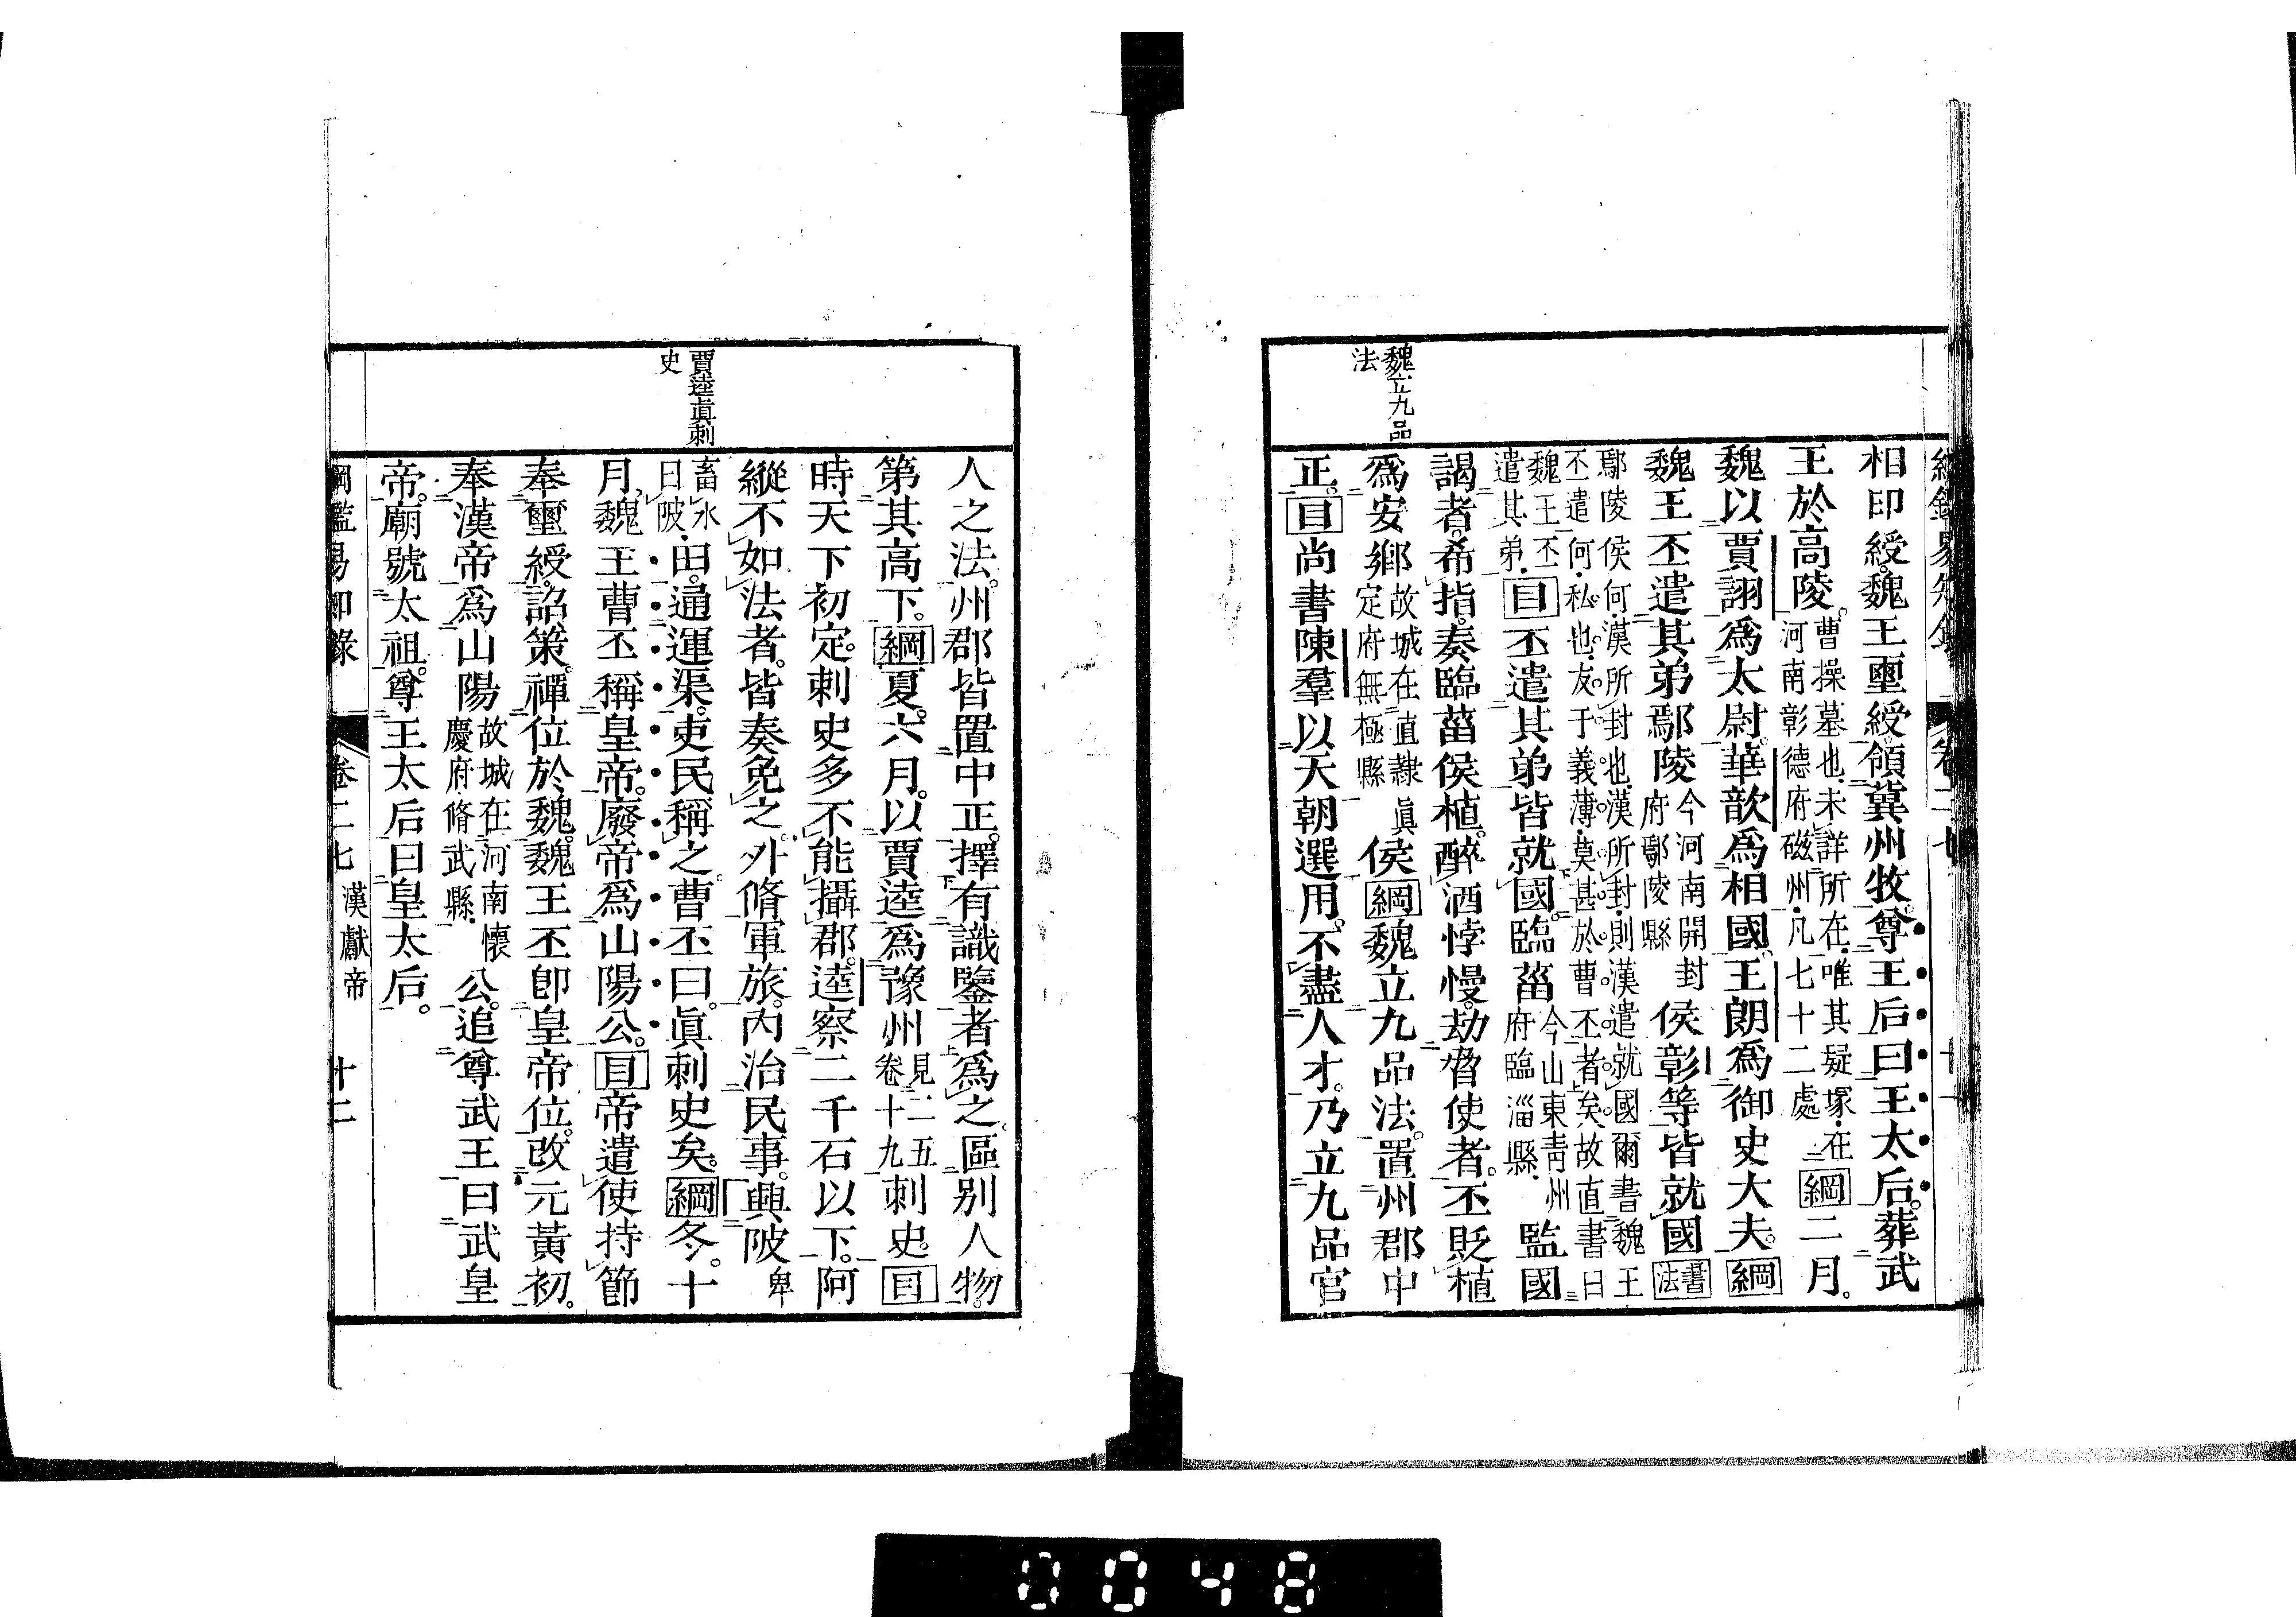 魏立九品
法
相印綬。魏王璽綬。領冀州牧。尊王后曰王太后。葬武
王於高陵。曹操墓也。未詳所在。唯其疑塚。在河南彰德府磁州。凡七十二處綱二月。
魏以賈詡爲太尉。華歆爲相國。王朗爲御史大夫。綱
魏王丕遣其弟鄢陵今河南開封府鄢陵縣侯彰等皆就國書法
鄢陵侯何。漢所封也。漢所封。則漢遣就國爾。書魏王
丕遣何。私也。友于義薄。莫甚於曹丕者矣。故直書曰
魏王丕遣其弟。目丕遣其弟皆就國。臨菑今山東靑州府臨淄縣。監國
謁者希指。奏臨菑侯植。醉酒悖慢。劫脅使者。丕貶植
爲安鄉故城在直隸眞定府無極縣侯綱魏立九品法。置州郡中
正。目尚書陳羣以天朝選用。不盡人才。乃立九品官
賈逵眞刺
史
人之法。州郡皆置中正。擇有識鑒者爲之。區別人物。
第其高下。綱夏。六月。以賈逵爲豫州見二五卷十九刺史。目
時天下初定。刺史多不能攝郡。逵察二千石以下。阿
縱不如法者。皆奏免之。外脩軍旅。內治民事。興陂卑
畜水曰陂。田。通運渠。吏民稱之。曹丕曰。眞刺史矣。綱冬。十
月。魏王曹丕稱皇帝。廢帝爲山陽公。目帝遣使持節
奉璽綬。詔策。禪位於魏。魏王丕卽皇帝位。改元黃初。
奉漢帝爲山陽故城在河南懷慶府脩武縣。公。追尊武王曰武皇
帝。廟號太祖。尊王太后曰皇太后。
綱鑑易知錄 卷二七 漢獻帝 十二
0048